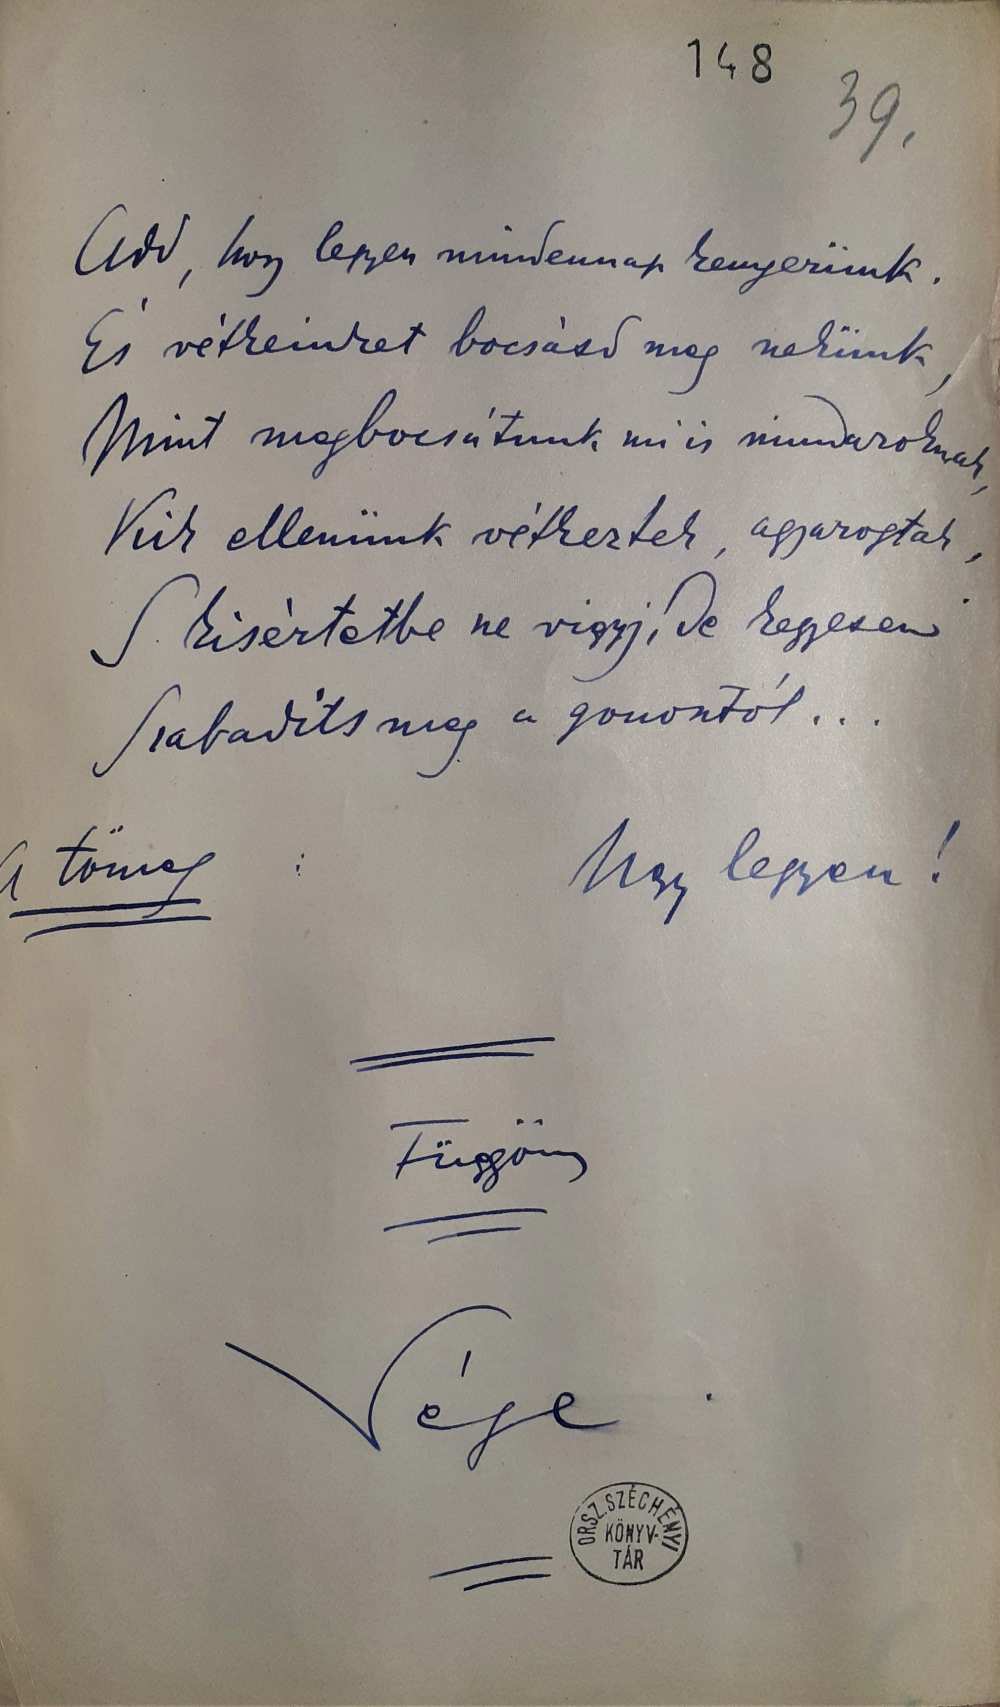 148
39.
Add, hogy legyen mindennap kenyerünk.
És vétkeinket bocsásd meg nekünk,
Mint megbocsátunk mi is mindazoknak,
Kik ellenünk vétkeztek, agyarogtak,
S kisértetbe ne vigyj, de kegyesen
Szabadíts meg a gonosztól...
A tömeg : Ugy legyen!
Függöny
Vége
ORSZ. SZÉCHÉNYI
KÖNYV-
TÁR